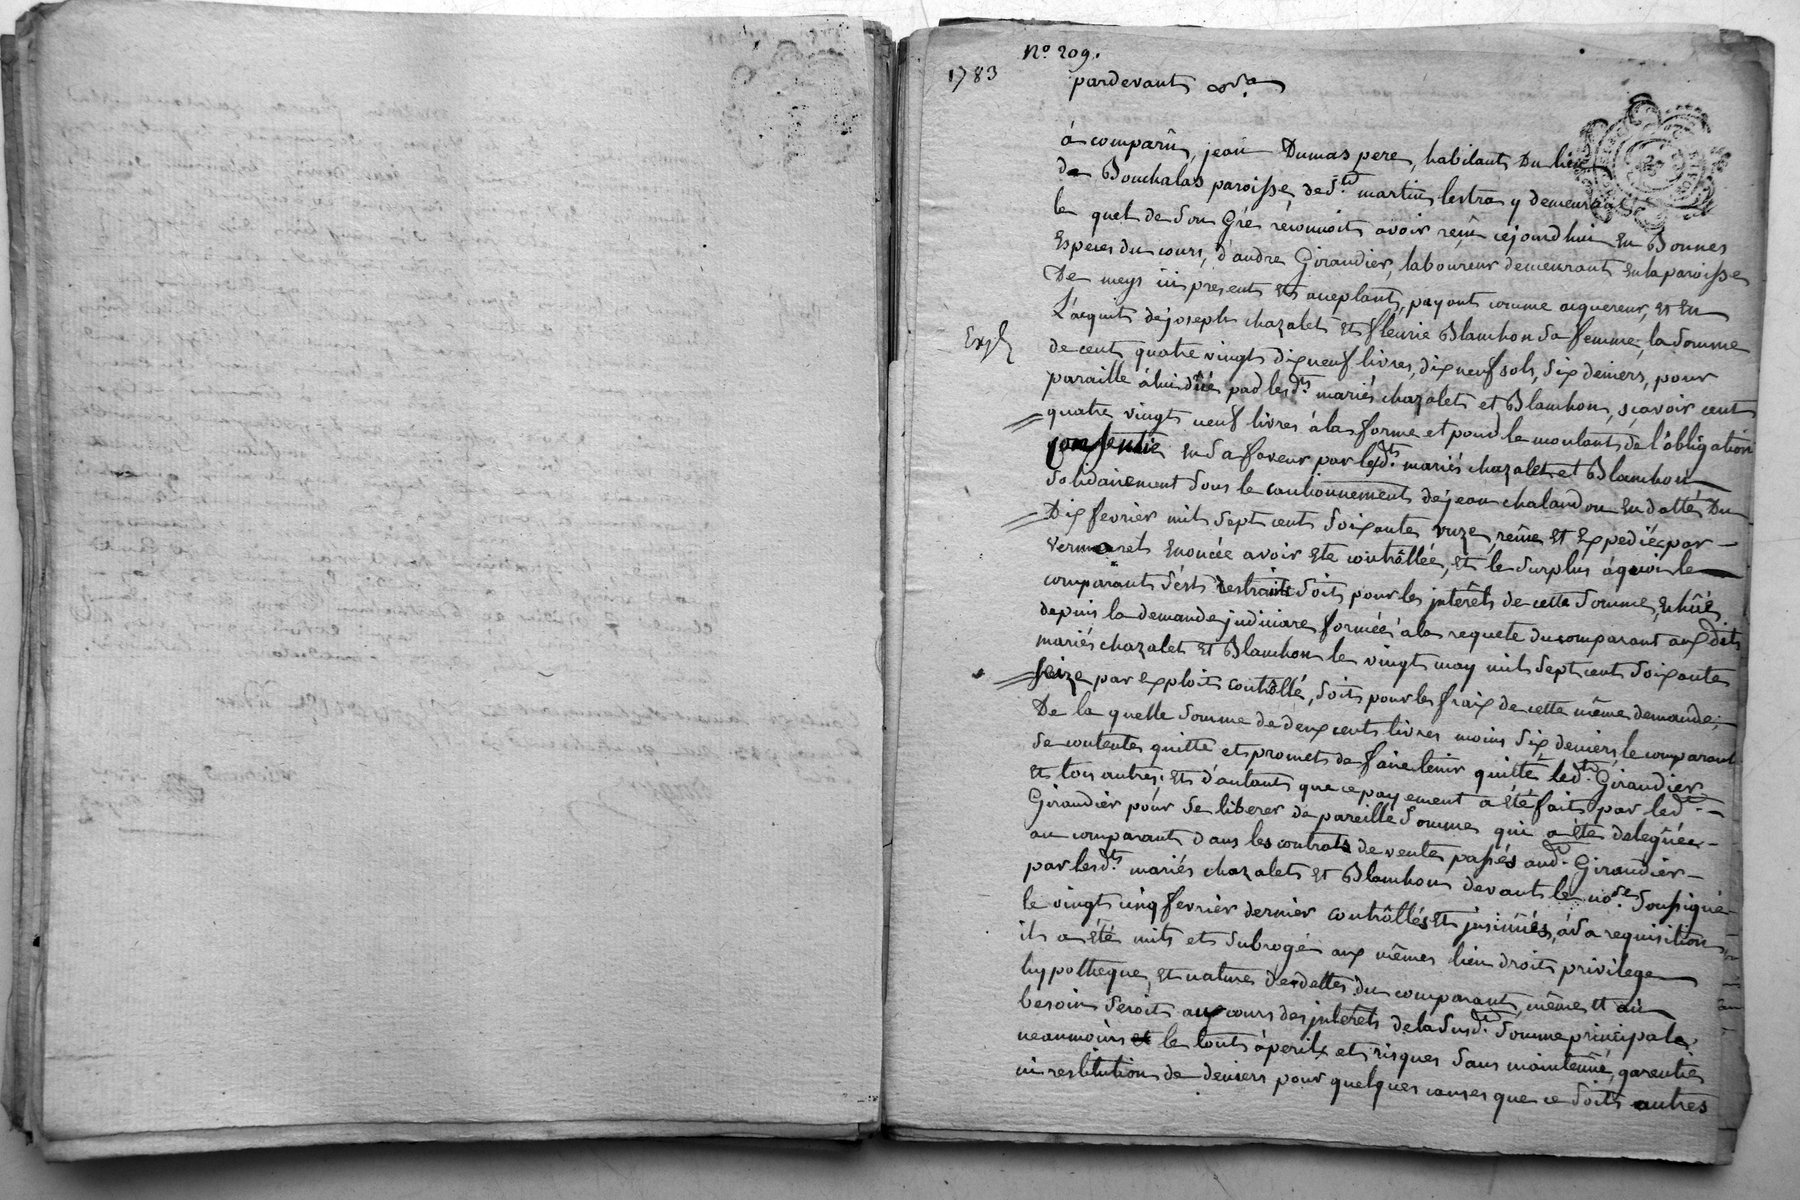 N.º 209.
1783
pardevant
à comparû, jean Dumas pere, habitant Du lieu
de Bouchalas paroisse de St. martin lestra y demeurant
le quel de son Gré reconnoit avoir reçu cejourdhui en Bonnes
Especes du cours, d'andre Girandier, laboureur demeurant en la paroisse
De meys ici present et acceptant, payant comme acquereur, et En
L'acquit de joseph chazalet et fleurie Blanchon sa femme, la somme
Exp
de cent quatre vingt dixneuf livres, dixneuf sols, six deniers, pour
paraille à lui dûe par lesdts. mariés chazalet et Blanchon, sçavoir cent
quatre vingt neuf livres à la forme et pour le montant de l'obligation
consentie en sa faveur par lesdts. mariés chazalet et Blanchon
solidairement sous le cautionnement de jean chalandon en datte Du
Dix fevrier mil sept cent soixante onze, reçue et Expediée par
Vermaret Enoncée avoir été contrôllée, et le surplus à quoi le
comparant s'est restraint soit pour les jnterêts de cette somme, Echûs
depuis la demande judiciaire formée à la requete du comparant aux dits
mariés chazalet et Blanchon le vingt may mil sept cent soixante
seize par exploit contrôllé, soit pour les fraix de cette même demande;
De la quelle somme de deux cent livres moins six deniers, le comparant
se contente quitte et promet de faire tenir quitte ledt. Girandier
et tous autres; et d'autant que ce payement a été fait par ledt.
Girandier pour se liberer de pareille somme qui a été deleguée
au comparant dans les contrats de vente passés audt. Girandier
par lesdts. mariés chazalet et Blanchon devant le nore. soussigné
le vingt cinq fevrier dernier contrôllés et jnsinués, à sa requisition
il a été mit et subrogé aux mêmes lieu droit privilege
hypotheque, et nature de dettes du comparant, même et au
besoin seroit au cours des jnterêts de la susdt. somme principale,
neanmoins le tout à perils et risques sans maintenüe, garentie
ni restitution de deniers pour quelques causes que ce soit autres